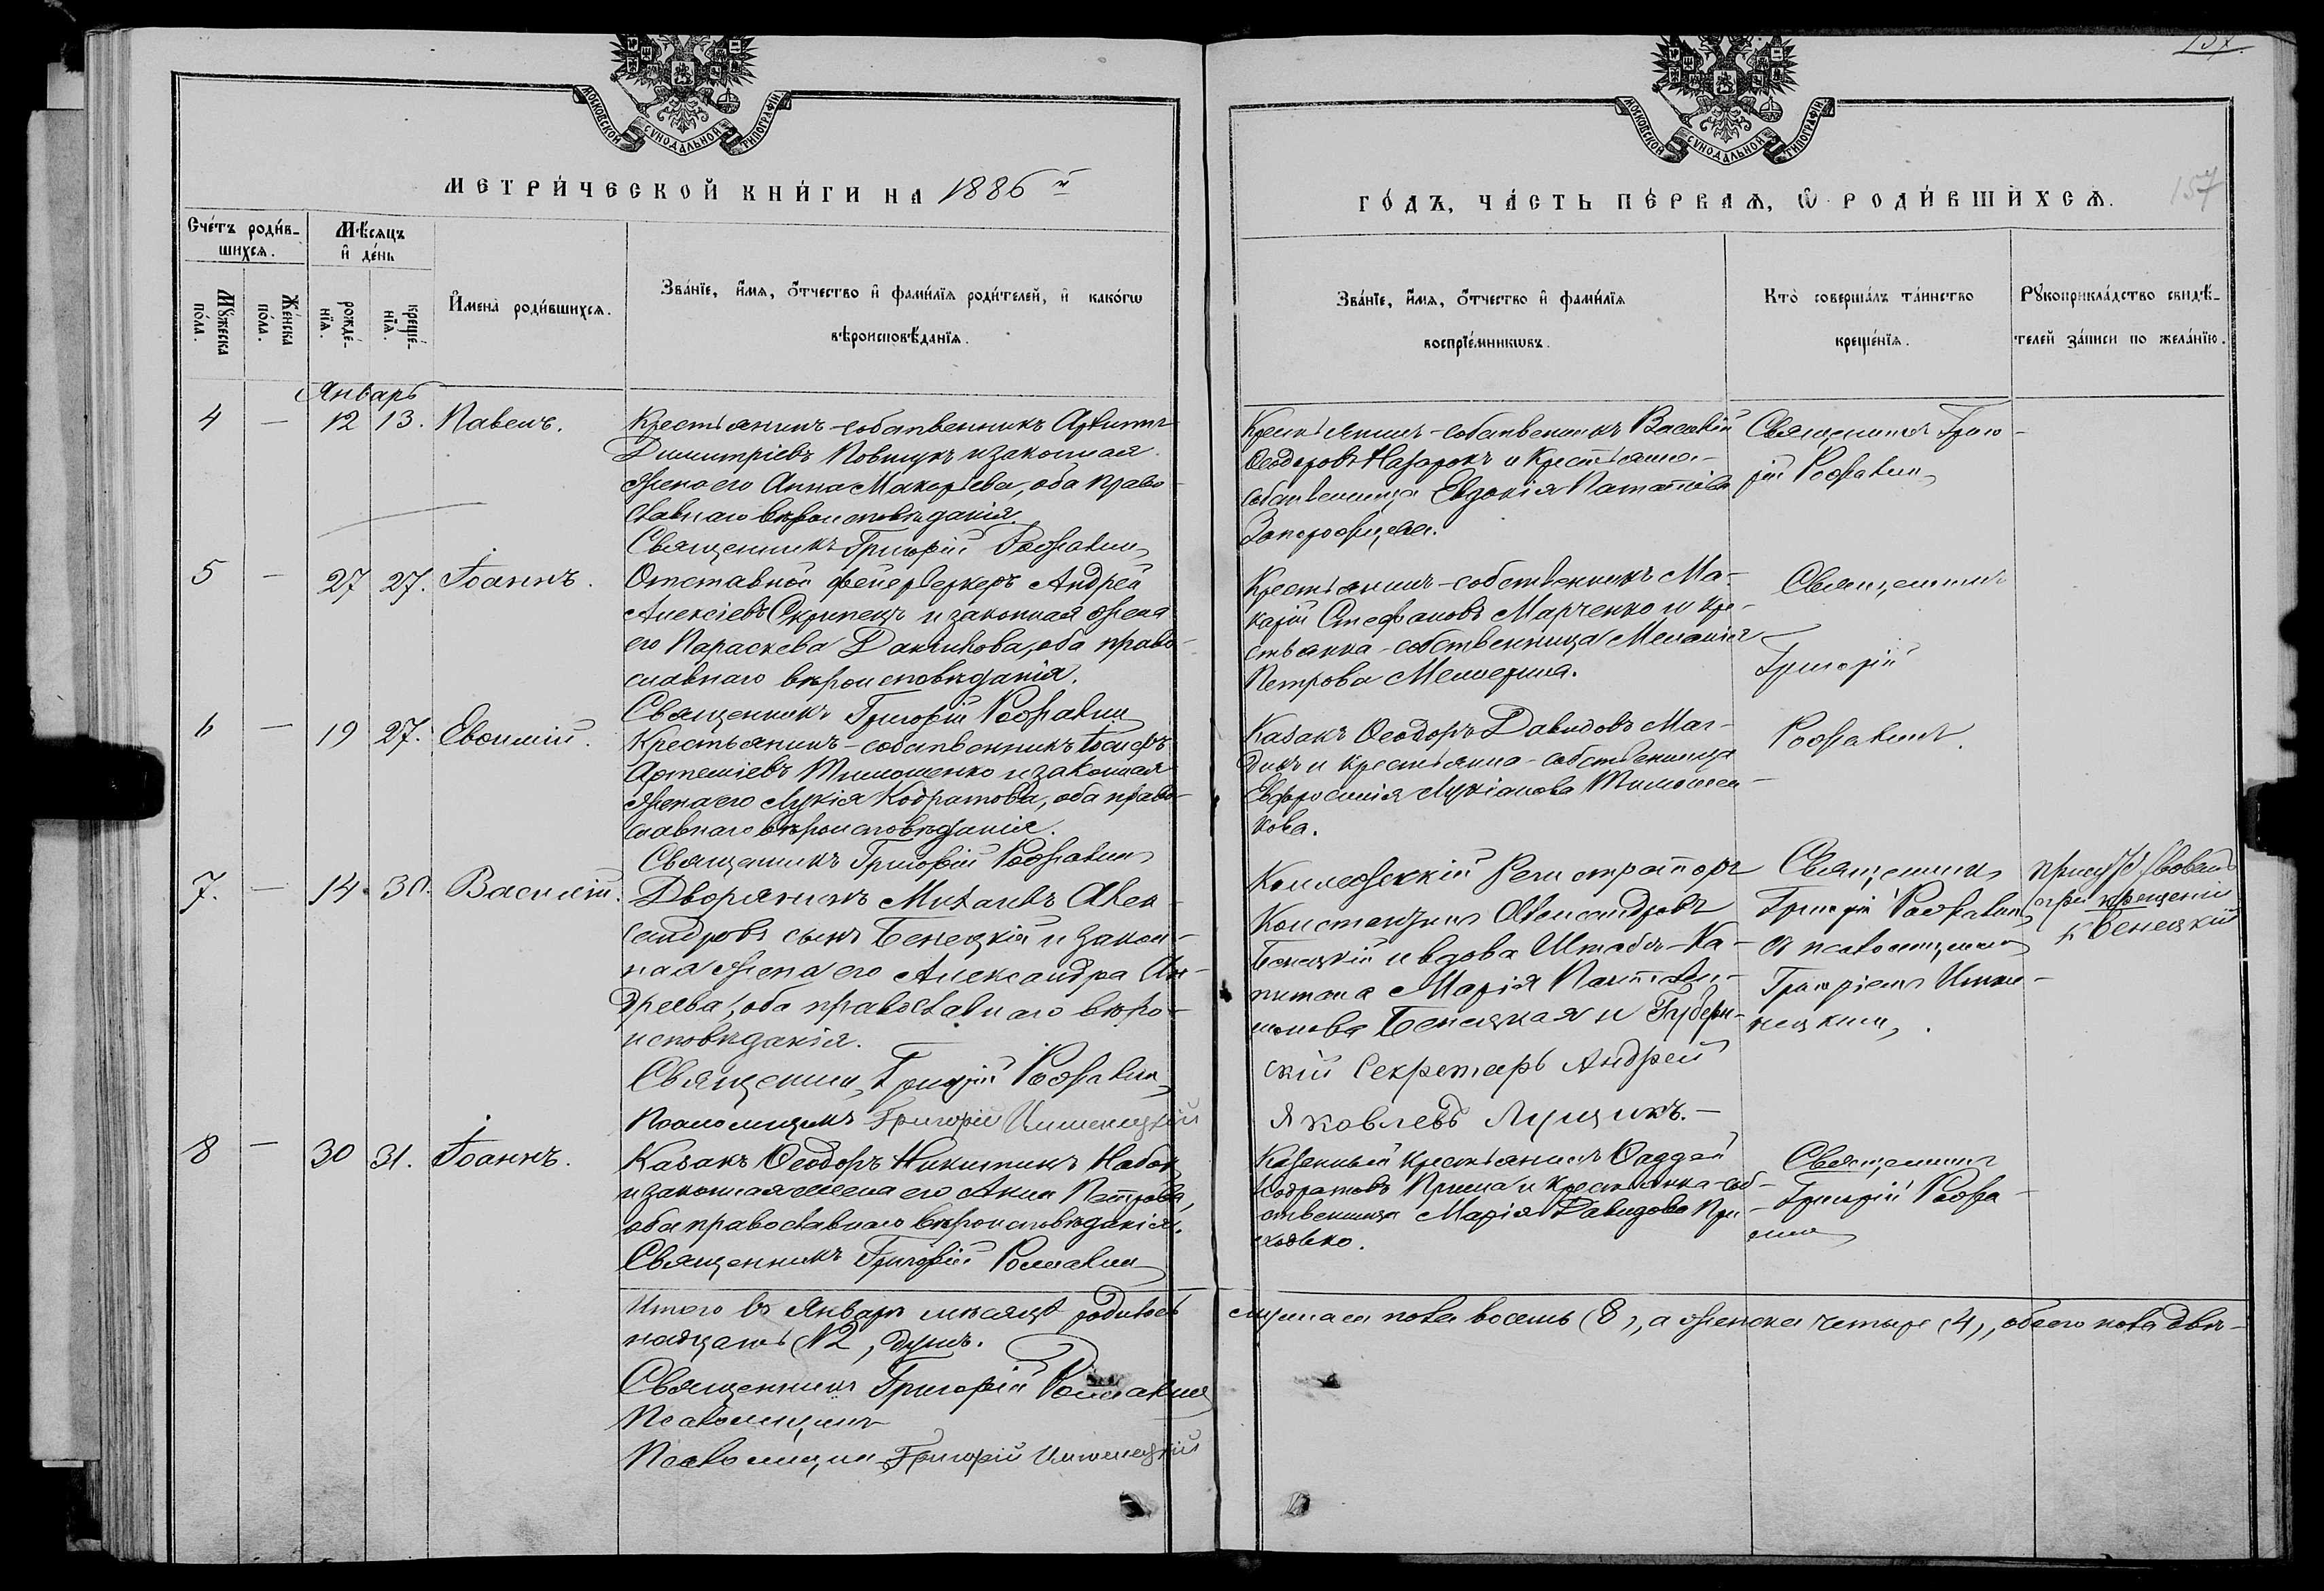 137.
МОСКОВСКОЙ СѴНОДАЛЬНОЙ ТИПОГРАФІИ
МЕТРИ́ЧЕСКОЙ КНИ́ГИ НА 1886 й
Сче́тъ роди́в-
шихсѧ.
Мѣ́сѧцъ
и҆ де́нь
Мꙋ́жеска
по́ла.
Же́нска
по́ла.
рожде́-
нїѧ.
креще́-
нїѧ.
И҆мена̀ роди́вшихсѧ.
Зва́нїе, и҆́мѧ, ѻ҆́тчество и҆ фами́лїѧ роди́телей, и҆ како́гѡ
вѣроисповѣ́данїѧ.
Январь
4 — 12 13. Павелъ.
Крестьянинъ-собственникъ Архиппъ
Димитріевъ Повшукъ и законная
жена его Анна Макарьева, оба право-
славнаго вѣроисповѣданія.
Священникъ Григорій Рожалин
5 — 27 27. Іоаннъ.
Отставной фейерверкеръ Андрей
Алексіевъ Скрипецъ и законная жена
его Параскева Даніилова, оба право-
славнаго вѣроисповѣданія.
Священникъ Григорій Рожалин
6 — 19 27. Евѳимій.
Крестьянинъ-собственникъ Іосифъ
Артеміевъ Тимошенко и законная
жена его Лукія Кодратова, оба право-
славнаго вѣроисповѣданія.
Священникъ Григорій Рожалин
7. — 14. 30. Василій.
Дворянинъ Михаилъ Алек-
сандровъ сынъ Бенецкій и закон-
ная жена его Александра Ан-
дреева, оба православнаго вѣро-
исповѣданія.
Священникъ Григорій Рожалин
Псаломщикъ Григорій
8 — 30 31. Іоаннъ.
Казакъ Ѳеодоръ Никитинъ Набок
и законная жена его Анна Петрова,
оба православнаго вѣроисповѣданія.
Священникъ Григорій Рожалин
Итого въ Январѣ мѣсяцѣ родилось
надцать (12), душъ.
Священникъ Григорій Рожалин
Псаломщикъ
Псаломщикъ Григорій
МОСКОВСКОЙ СѴНОДАЛЬНОЙ ТИПОГРАФІИ
157
ГО́ДЪ, ЧА́СТЬ ПЕ́РВАѦ, Ѡ҆ РОДИ́ВШИХСѦ.
Зва́нїе, и҆́мѧ, ѻ҆́тчество и҆ фами́лїѧ
воспрїе́мникѡвъ.
Кто̀ соверша́лъ та́инство
креще́нїѧ.
Рꙋкоприкла́дство свидѣ́-
телей за́писи по жела́нїю.
Крестьянинъ-собственникъ Василій
Ѳеодоровъ Назарокъ и крестьянка-
собственница Евдокія Потапіева
Запорожцева.
Священникъ Григо-
рій Рожалин
Крестьянинъ-собственникъ Ма-
карій Стефановъ Марченко и кре-
стьянка-собственница Меланія
Петрова
Священникъ
Григорій
Рожалинъ.
Казакъ Ѳеодоръ Давидовъ Маг-
дикъ и крестьянка-собственница
Евфросинія Лукіанова Тимошен-
кова.
Коллежскій Регистраторъ
Константинъ Александровъ
Бенецкій и вдова Штабсъ-Ка-
питана Марія Пантелей-
монова Бенецкая и Губерн-
скій Секретарь Андрей
Яковлевъ Лущикъ.—
Священникъ
Григорій Рожалин
съ псаломщикомъ
Григоріемъ
присутствовалъ
при крещеніи
К Бенецкій
Казенный крестьянинъ Ѳаддей
Кодратовъ Прима и крестьянка-соб-
ственница Марія Давидова При-
ходько.
Священникъ
Григорій Рожа-
лин
мужеска пола восемь (8), а женска четыре (4), обоего пола двѣ-